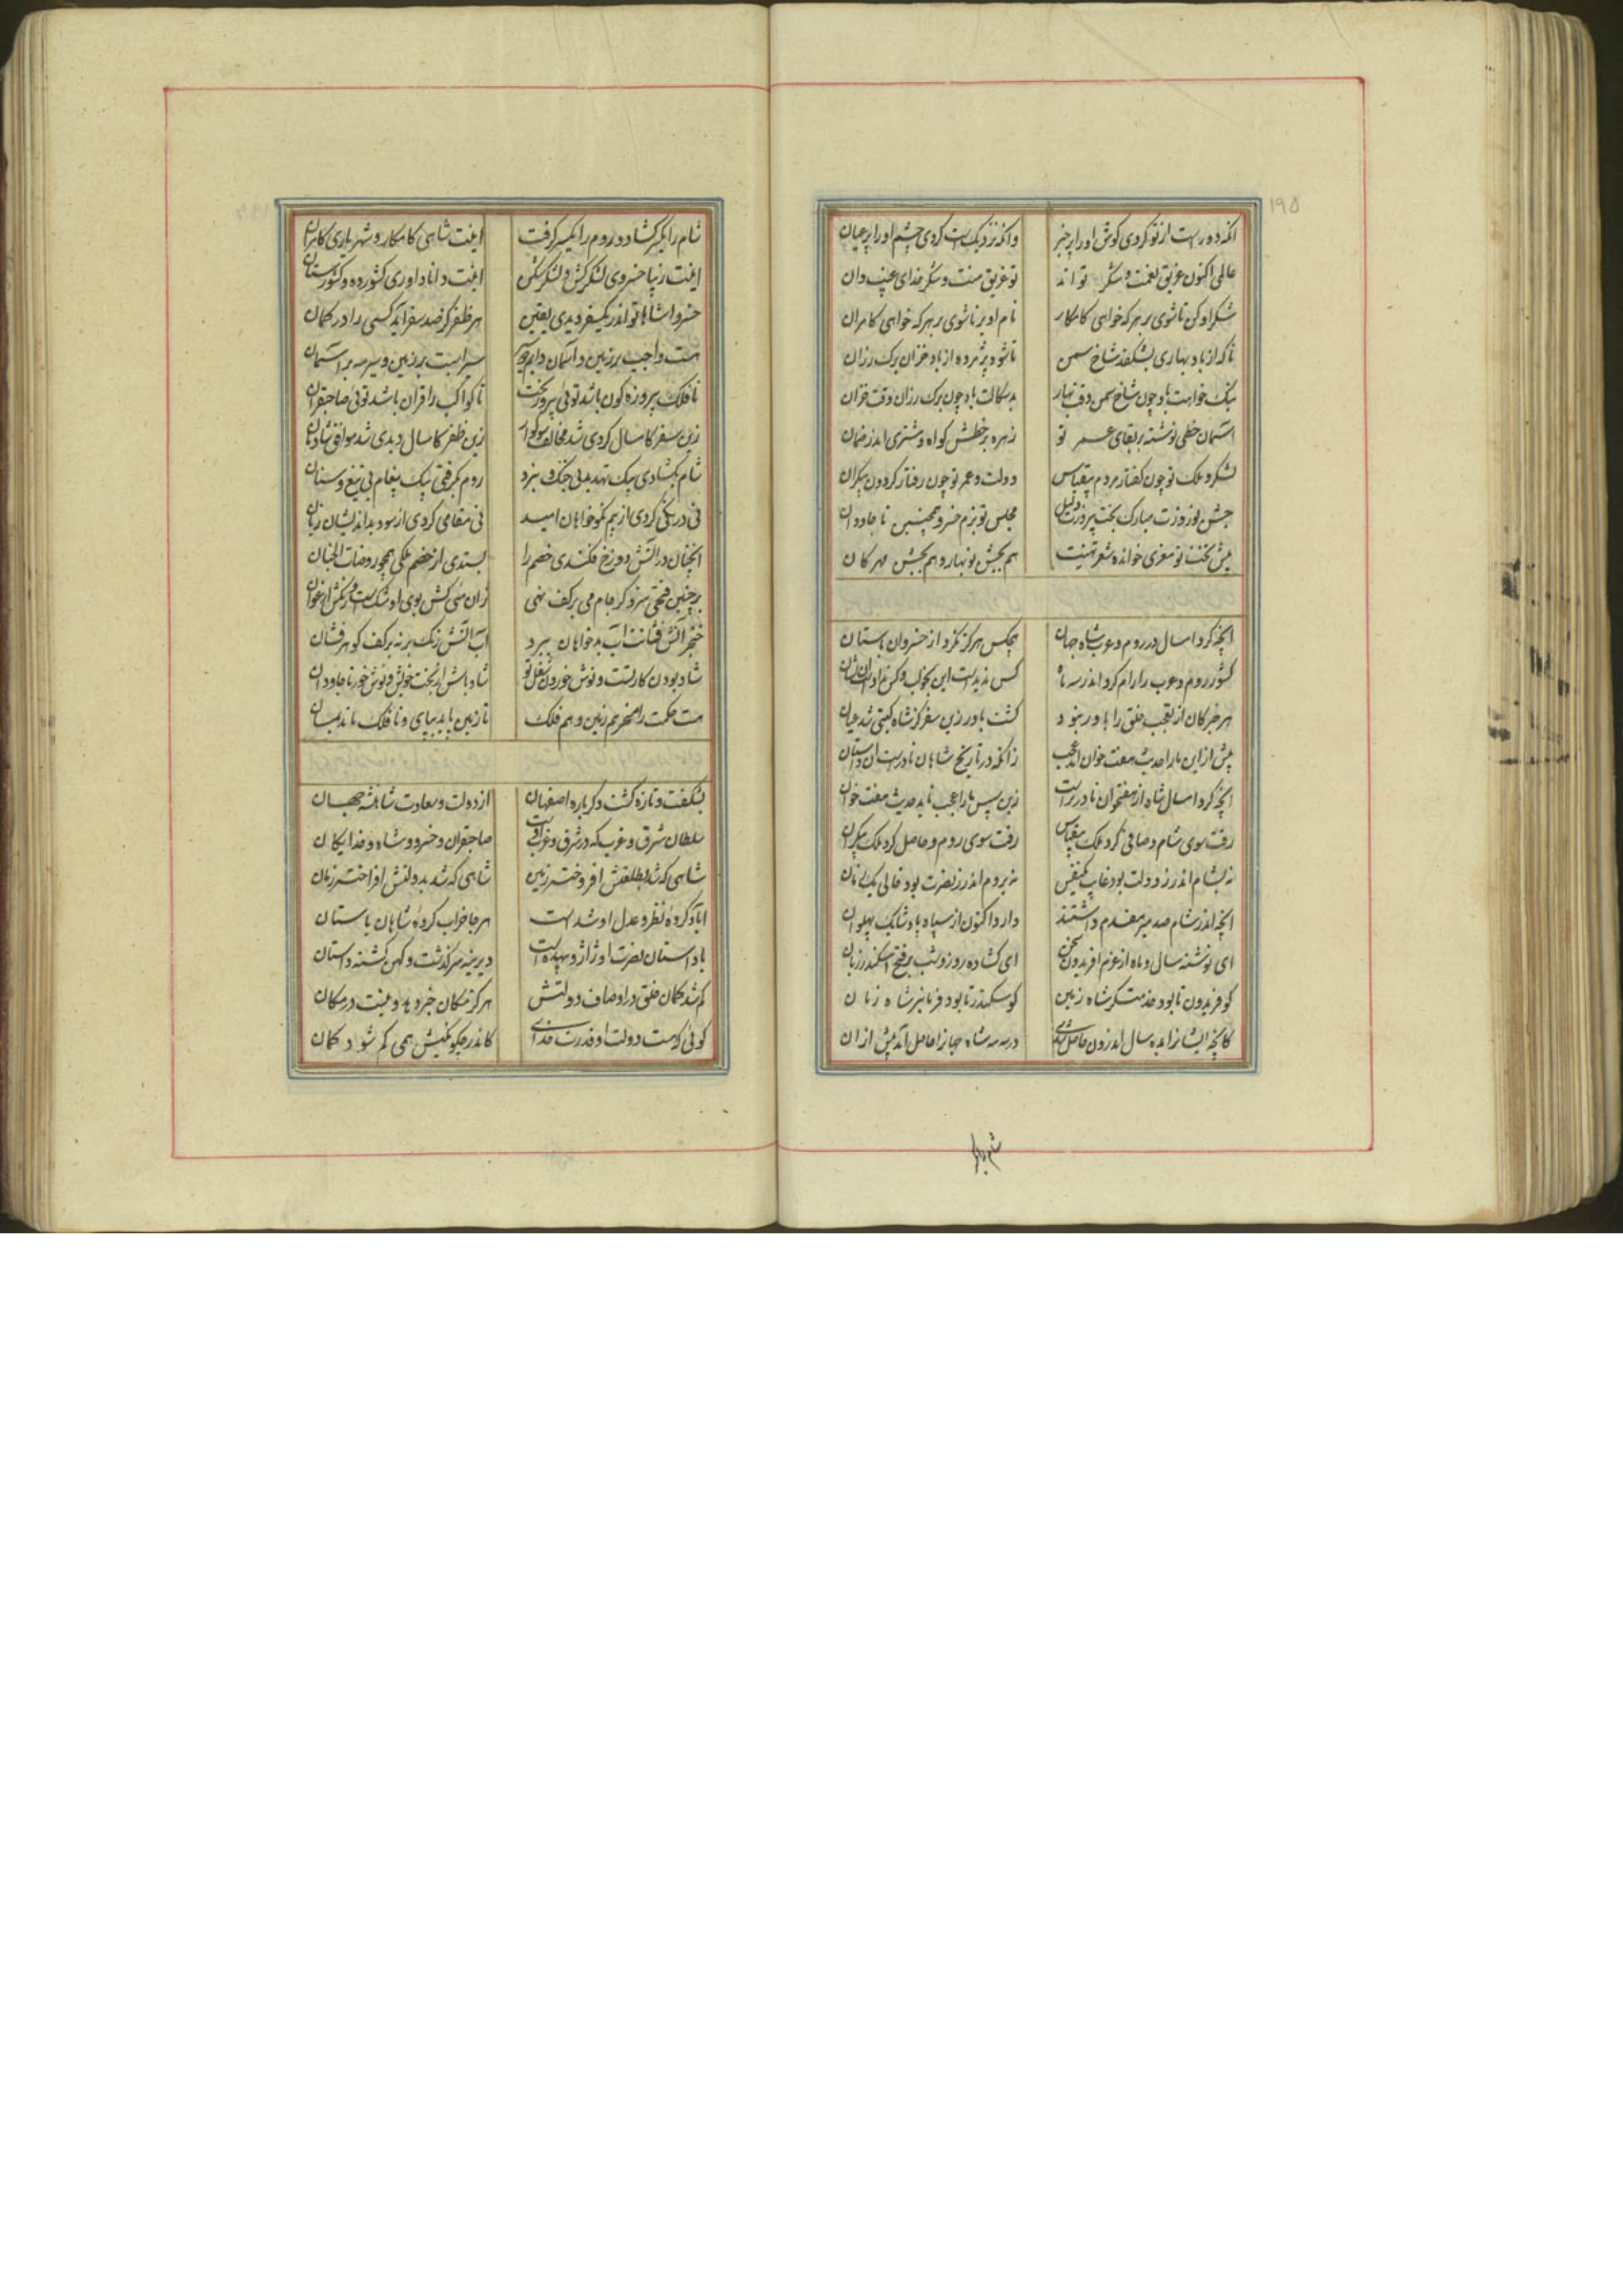 ۱۹۵
انکه دورست از تو کردی کوش او را پر خبر وانکه نزدیکست کردی چشم او را پر عیان
عالمی اکنون غریق نعمت و شکر تو اند تو غریق منت و شکر خدای غیب دان
شکر او کن تا شوی بر هر که خواهی کامکار نام او بر تا شوی بر هر که خواهی کامران
تا که از باد بهاری بشکفد شاخ سمن تا شود پژمرده از باد خزان برک رزان
نیک خواهت باد چون شاخ سمن وقت بهار بدسکالت باد چون برک رزان وقت خزان
آسمان خطی نوشته بر بقای عمر تو زهره بر خطش کواه و مشتری اندر ضمان
لشکر و ملک تو چون کفتار مردم بیقیاس دولت و عمر تو چون رفتار کردون بیکران
جشن نوروزت مبارک بخت پیروزت دلیل مجلس تو بزم خسرو همچنین تا جاودان
پیش تختت تو معزی خوانده شعر تهنیت هم بجشن نوبهار و هم بجشن مهرکان
آنچه کرد امسال در روم و عرب شاه جهان هیچکس هرکز نکرد از خسروان باستان
کشور روم و عرب را رام کرد اندر سه ماه کس ندیدست این بخواب و کس نداد از ان نشان
هر خبر کان از تعجب خلق را باور نبود کشت باور زین سفر کز شاه کیتی شد عیان
پیش از این ما را حدیث هفت خوان آمد عجب زانکه در تاریخ شاهان نادرست آن داستان
آنچه کرد امسال شاه از هفتخوان نادرترست زین سپس ما را عجب ناید حدیث هفت خوان
رفت سوی شام و صافی کرد ملک بیقیاس رفت سوی روم و حاصل کرد ملک بیکران
نه بشام اندر ز دولت بود غایب یکنفس نه بروم اندر ز نصرت بود خالی یک زمان
آنچه اندر شام صد میر مقدم داشتند دارد اکنون از سپاه پادشا یک پهلوان
ای نوشته سال و ماه از عزم افریدون سخن ای کشاده روز و شب بر فتح اسکندر زبان
کو فریدون تا بود خدمتکر شاه زمین کو سکندر تا بود فرمانبر شاه زمان
کانچه ایشانرا بده سال اندرون حاصل شدی در سه مه شاه جهانرا حاصل آمد بیش از ان
شام را یکسر کشاد و روم را یکسر کرفت اینت شاهی کامکار و شهریاری کامران
اینت زیبا خسروی لشکرکش و لشکرشکن اینت دانا داوری کشورده و کشورستان
خسروا شاها تو اندر یکسفر دیدی یقین هر ظفر کز صد سفر آید کسی را در کمان
هست واجب بر زمین و آسمان
تا فلک پیروزه کون باشد توئی پیروزبخت تا کواکب را قران باشد توئی صاحبقران
زین سفر کامسال کردی شد مخالف سوکوار زین ظفر کامسال دیدی شد موافق شادمان
شام بکشادی بیک تهدید بی جنک و نبرد روم بکرفتی بیک پیغام بی تیغ و سنان
نی درنکی کردی از بیم نکوخواهان امید نی مقامی کردی از سود بداندیشان زیان
آنچنان در آتش دوزخ فکندی خصم را بستدی از خصم ملکی همچو روضات الجنان
بر چنین فتحی سزد کر جام می بر کف نهی زان می کش بوی او مشکست و رنکش ارغوان
خنجر آتش فشانت آب بدخواهان ببرد آب آتش رنک بر نه بر کف کوهرفشان
شاد بودن کار تست و نوش خوردن شغل تو شاد باش از بخت خویش و نوش خور تا جاودان
هست حکمت را مسخر هم زمین و هم فلک تا زمین باید بپای و تا فلک ماند بمان
بشکفت و تازه کشت دکر باره اصفهان از دولت و سعادت شاهنشه جهان
سلطان شرق و غرب که در شرق و غرب اوست صاحبقران و خسرو و شاه و خدایکان
شاهی که شد بطلعتش افروخته زمین شاهی که شد بدولتش افراخته زمان
آباد کرده نظر و عدل او شدست هر جا خراب کرده شاهان باستان
با داستان نصرت او ژاژ و بیهده است دیرینه سرکذشت و کهن کشته داستان
کم شد کمان خلق در اوصاف دولتش هرکز مکان خبر دهد و نیست در مکان
کوئی که هست دولت او قدرت خدای کاندر چکونکیش همی کم شود کمان
شام را یکسر